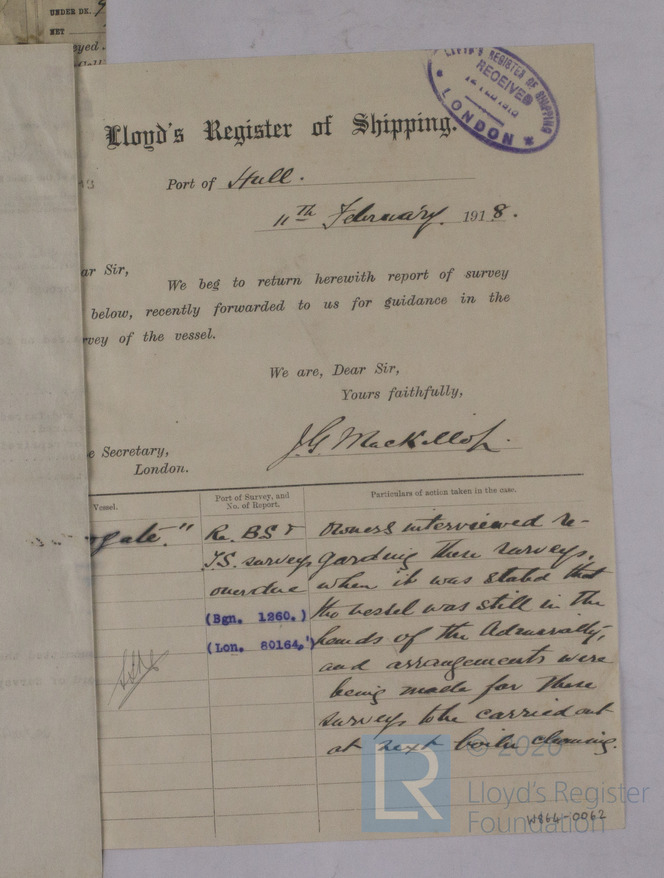 UNDER DK.
NET
eyed.
LLOYD'S REGISTER OF SHIPPING
RECEIVED
FEB 1918
* LONDON *
Lloyd's Register of Shipping.
Port of Hull.
11th February. 1918.
ar Sir,
We beg to return herewith report of survey
below, recently forwarded to us for guidance in the
rvey of the vessel.
We are, Dear Sir,
Yours faithfully,
J G Mackillop.
e Secretary,
London.
Vessel.
Port of Survey, and
No. of Report.
Particulars of action taken in the case.
gate."
Re. BS &
TS. surveys
overdue
(Bgn. 1260.)
(Lon. 80164.)
Owners interviewed re-
garding these surveys,
when it was stated that
the vessel was still in the
hands of the Admiralty,
and arrangements were
being made for these
surveys to be carried out
at next boiler cleaning.
LR
© 2020
Lloyd's Register
Foundation
W864-0062